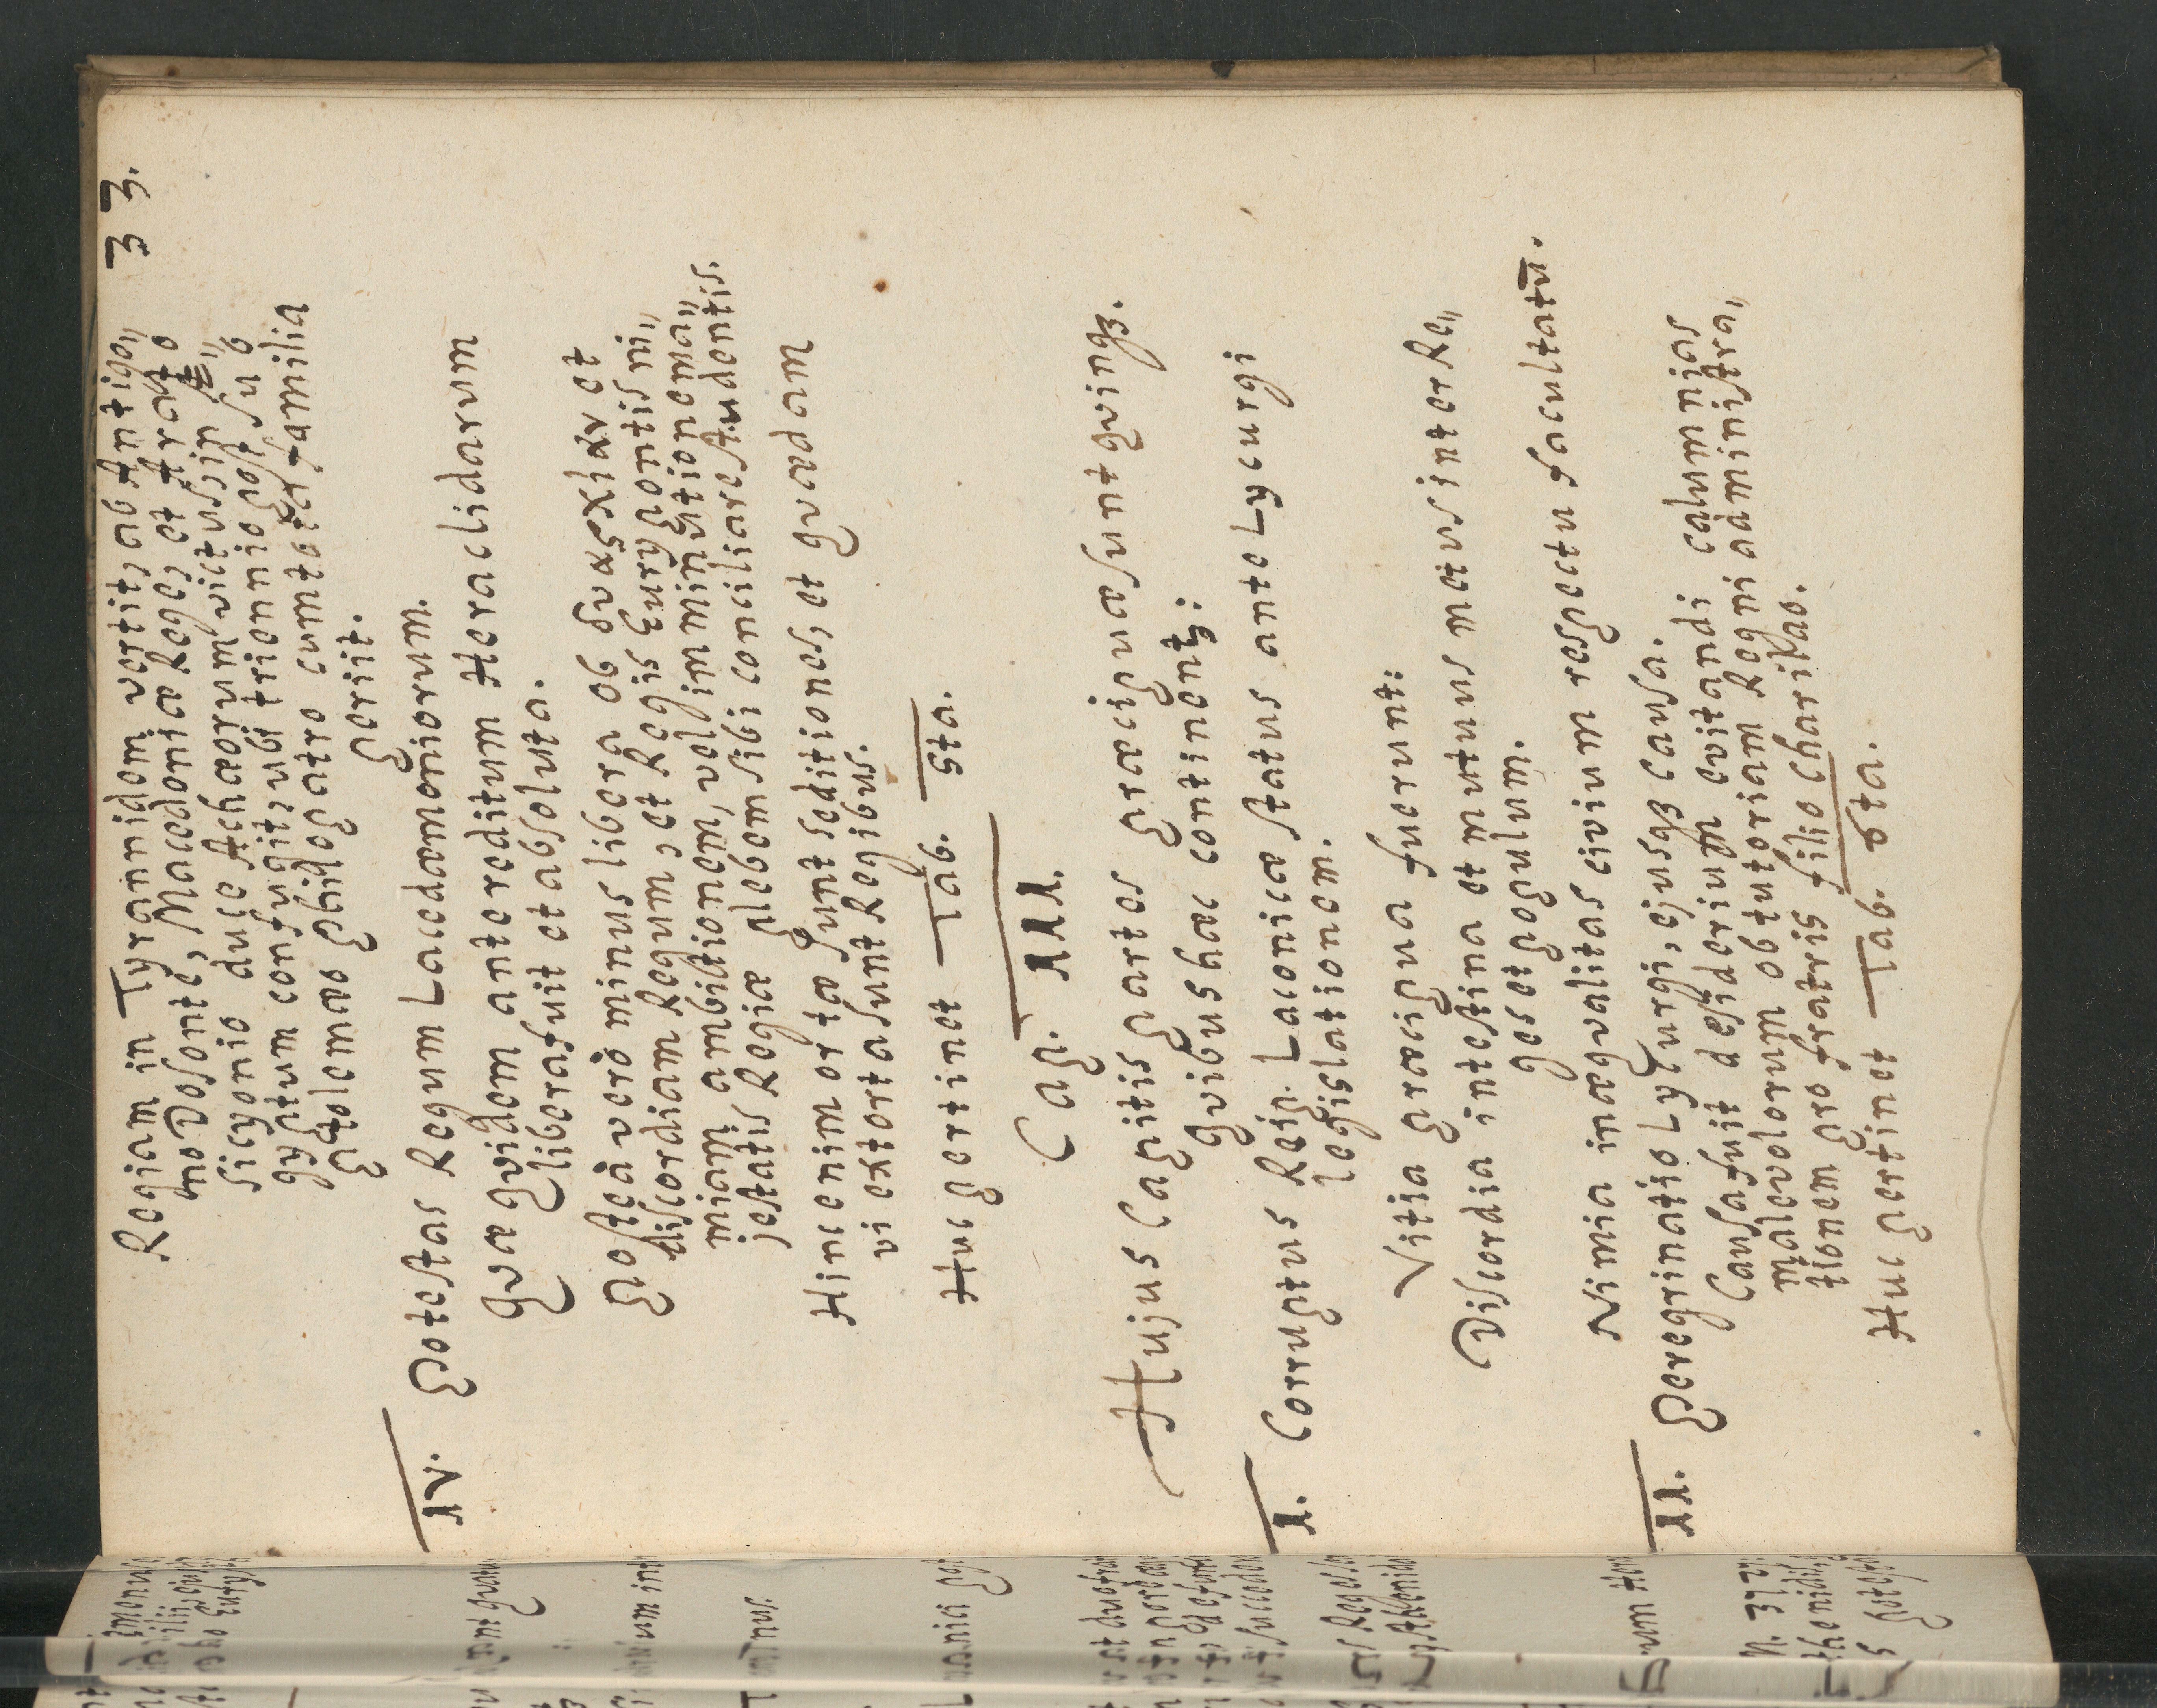 33.
Regiam in Tyrannidem vertit, ab Antigo„
no Dosonte, Macedoniæ Rege, et Arato
Sicyonio duce Achæorum victus, in Æ„
gyptum confugit, ubi triennio post suo
Ptolemæo Philopatre cum tota familia
periit.
IV. Potestas Regum Lacedæmoniorum.
Qvæ qvidem ante reditum Heraclidarum
libera fuit et absoluta.
Posteà verò minus libera ob δυαρχίαν et
discordiam Regum, et Regis Eurypontis ni„
miam ambitionem, vel imminutionem ma„
jestatis Regiæ plebem sibi conciliare studentis.
Hinc enim ortæ sunt seditiones, et qvædam
vi extorta sunt Regibus.
Huc pertinet Tab. 5ta.
Cap. III.
Hujus Capitis partes præcipuæ sunt qvinqꝫ.
qvibus hæc continentꝫ:
I. Corruptus Reip. Laconicæ status ante Lycurgi
legislationem.
Vitia præcipua fuerunt:
Discordia intestina et mutuus metus inter Re„
ges et populum.
Nimia inæqvalitas civium respectu facultatū.
II. Peregrinatio Lycurgi, ejusqꝫ causa.
Causa fuit desiderium evitandi calumnias
malevolorum ob tutoriam Regni administra„
tionem pro fratris filio Charilao.
Huc pertinet Tab. 6ta.